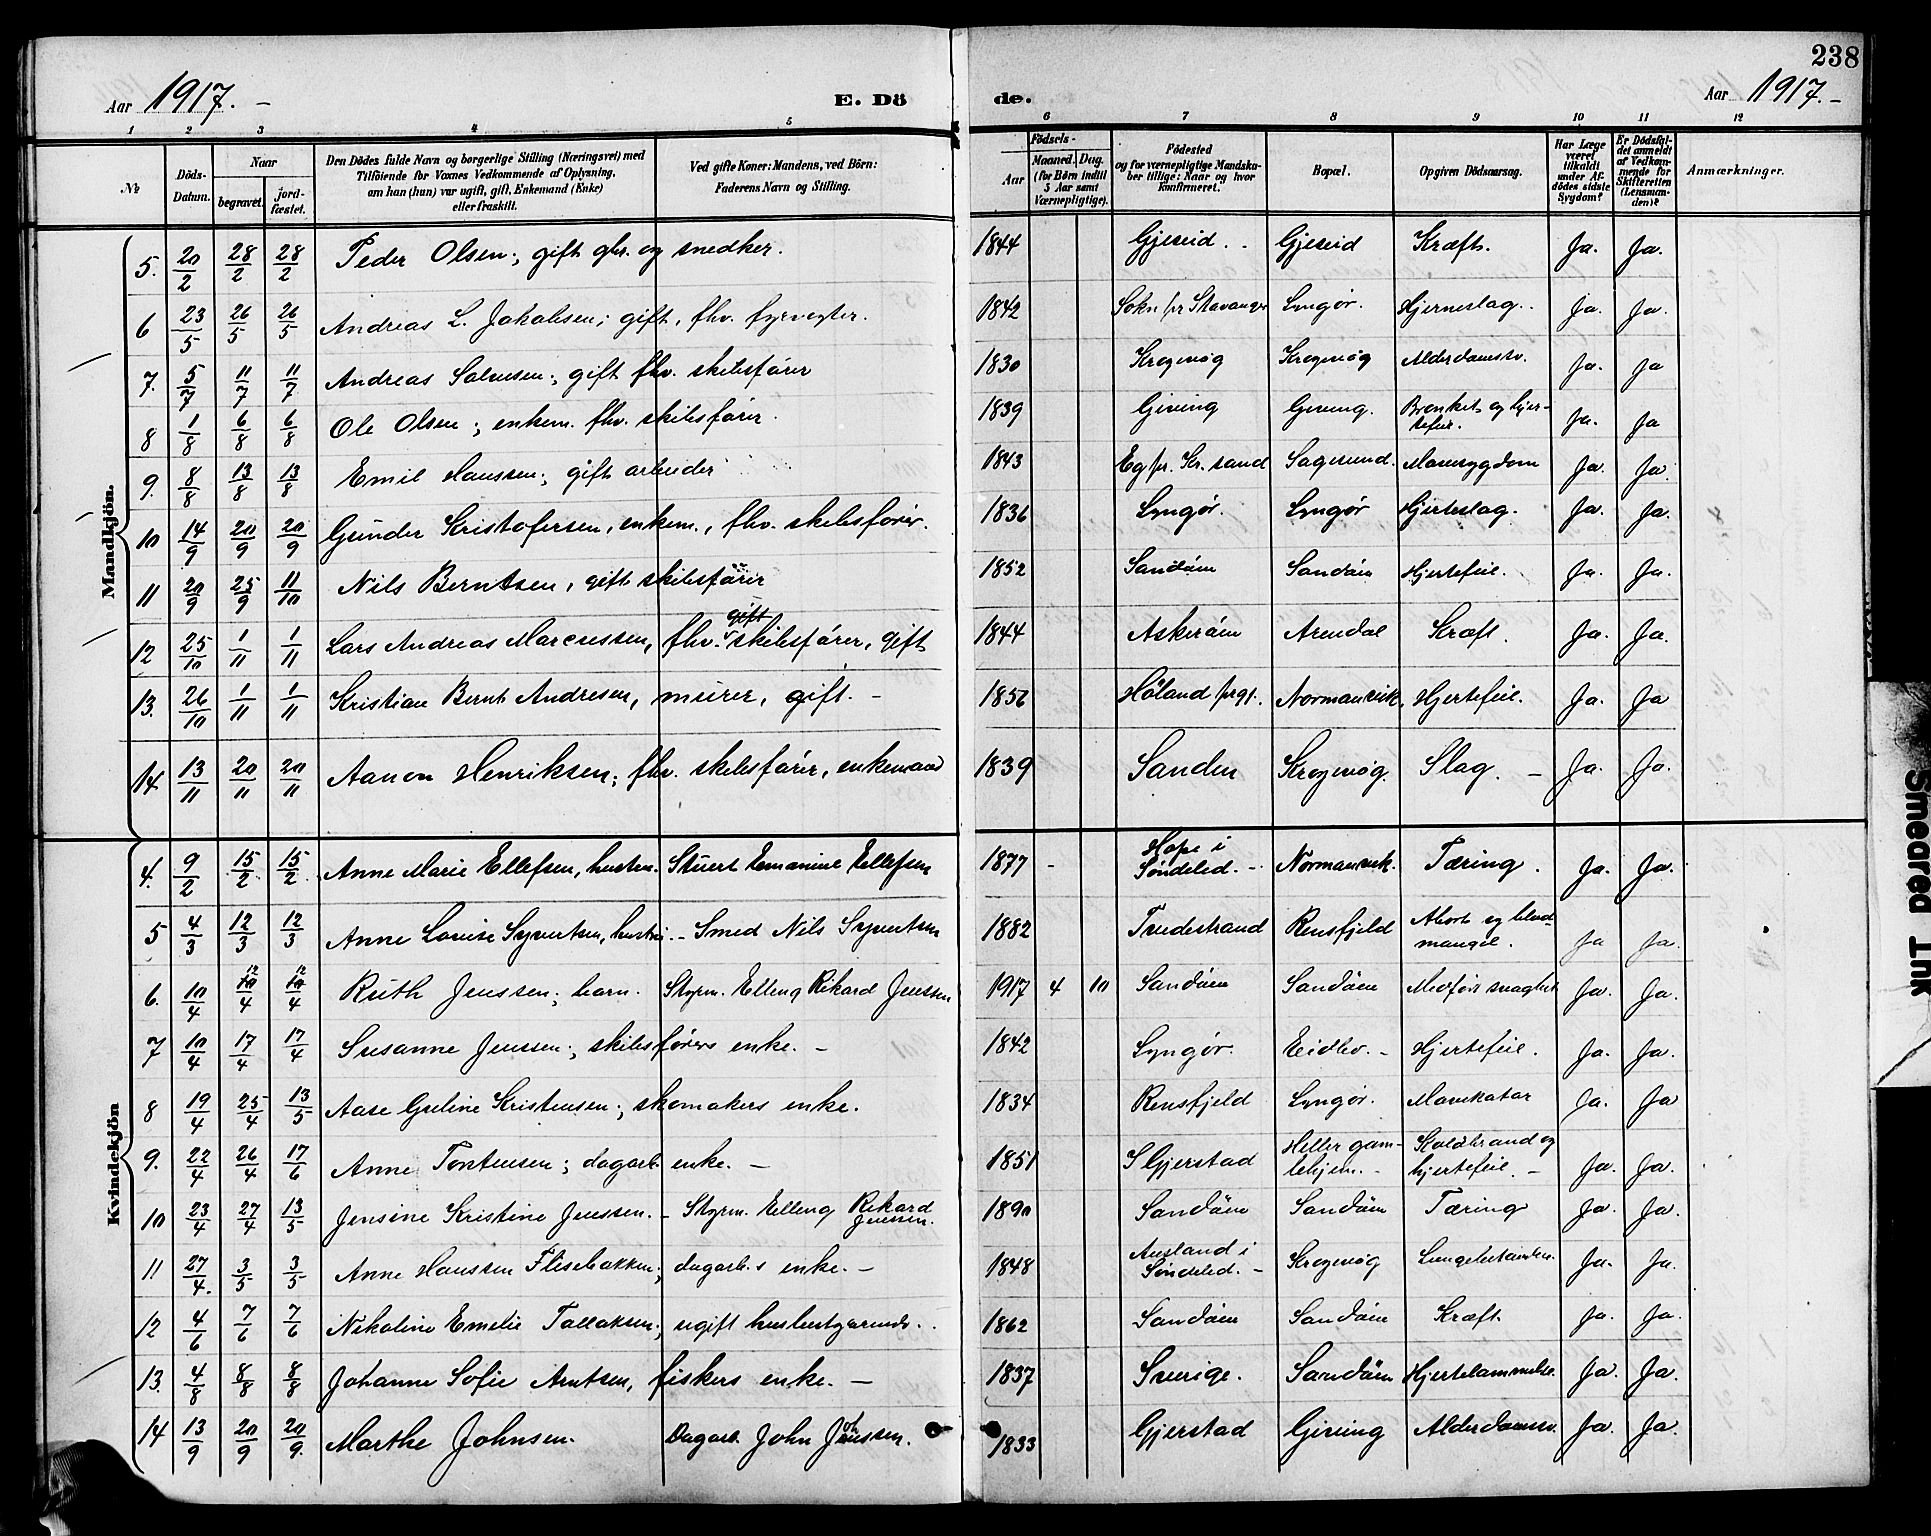 238
Aar 1917. -
E. Döde.
Aar 1917. -
1 2 3 4 5 6 7 8 9 10 11 12
№
Döds-Datum.
Naar
begravet.
jordfæstet.
Den Dödes fulde Navn og borgerlige Stilling (Næringsvei) med
Tilföiende for Voxnes Vedkommende af Oplysning,
om han (hun) var ugift, gift, Enkemand (Enke)
eller fraskilt.
Ved gifte Koner: Mandens, ved Börn:
Faderens Navn og Stilling.
Födsels-
Aar
Maaned. Dag.
(for Börn indtil
5 Aar samt
Værnepligtige).
Födested
og for værnepligtige Mandskaber tillige: Naar og hvor
konfirmeret.
Bopæl.
Opgiven Dödsaarsag.
Har Læge været tilkaldt under Afdödes sidste Sygdom?
Er Dödsfaldet anmeldt af Vedkommende for Skifteretten (Lensmanden)?
Anmærkninger.
Mandkjön.
5. 20/2 28/2 28/2 Peder Olsen; gift gbr. og snedker. 1844 Gjeseid. Gjeseid Kræft. Ja. Ja.
6 23/5 26/5 26/5 Andreas L. Jakobsen; gift, fhv. fyrvogter. 1842 Sokn pr Stavanger Lyngør. Hjerneslag. Ja. Ja.
7. 5/7 11/7 11/7 Andreas Salvesen; gift fhv. skibsfører 1830 Krogvåg Krogvåg Alderdomssv. Ja. Ja
8 1/8 6/8 6/8 Ole Olsen; enkem. fhv. skibsfører. 1839 Giving Giving. Bronkit og hjertefeil. Ja. Ja
9. 8/8 13/8 13/8 Emil Hanssen; gift arbeider 1843 Eg pr. Kr. sand Sagesund. Mavesygdom Ja. Ja.
10 14/9 20/9 20/9 Gunder Kristofersen, enkem., fhv. skibsfører. 1836 Lyngør. Lyngør Hjerteslag. Ja. Ja.
11 20/9 25/9 11/10 Nils Berntsen, gift skibsfører 1852 Sandøen Sandøen Hjertefeil. Ja. Ja.
12 25/10 1/11 1/11 Lars Andreas Marcussen, fhv. skibsfører, gift 1844 Askerøen Arendal Kræft. Ja. Ja.
13. 26/10 1/11 1/11 Kristian Bernt Andresen, murer, gift. - 1856 Høland prgj. Normansvik. Hjertefeil. Ja. Ja
14 13/11 20/11 20/11 Aanon Henriksen; fhv. skibsfører, enkemand 1839 Sanden Krogvåg. Slag. - Ja. Ja.
Kvindekjön
4. 9/2 15/2 15/2 Anne Marie Ellefsen, hustru. Stuert Emanuel Ellefsen 1877 - Hope i Søndeled. - Normansvik. Tæring. Ja. Ja.
5 4/3 12/3 12/3 Anne Lovise Syvertsen, hustru. - Smed Nils Syvertsen 1882 Tvedestrand Rensfjeld Abort og blodmangel. Ja Ja.
6. 10/4 12/4 12/4 Ruth Jenssen; barn. Styrm. Elling Rikard Jenssen 1917 4 10 Sandøen Sandøen Medført svaghet Ja. Ja.
7 10/4 17/4 17/4 Susanne Jenssen; skibsførers enke. - 1842 Lyngør. Eidbo. - Hjertefeil. Ja. Ja.
8 19/4 25/4 13/5 Aase Gurline Kristensen; skomakers enke. 1834 Rensfjeld Lyngør. Mavekatar Ja. Ja
9. 22/4 26/4 17/6 Anne Tentensen; dagarb. enke. - 1851 Gjerstad Heller gamlehjem. - Koldbrand og hjertefeil. - Ja. Ja.
10 23/4 27/4 13/5 Jensine Kristine Jenssen. - Styrm. Elling Rikard Jenssen. 1890 Sandøen Sandøen Tæring Ja. Ja.
11 27/4. 3/5 3/5 Anne Hanssen Flisebakken; dagarb.s enke. - 1848 Ausland i Søndeled. - Krogvåg Lungebetændelse. Ja. Ja.
12 4/6 7/6 7/6 Nikoline Emelie Tallaksen; ugift husbestyrerinde. 1862 Sandøen Sandøen Kræft. Ja. Ja.
13. 4/8 8/8 8/8 Johanne Sofie Arntsen, fiskers enke. - 1837 Sverige. Sandøen Hjertelammelse. Ja. Ja.
14 13/9 20/9 20/9. Marthe Johnsen. Dagarb. John Johnssen. 1833 Gjerstad Giving Alderdomssv. Ja. Ja.
Smeared Ink